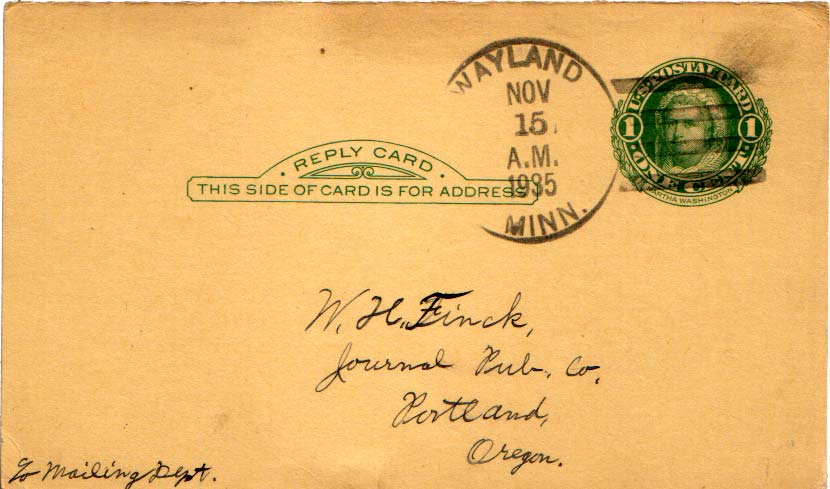 WAYLAND
NOV
15
A.M.
1935
MINN.
U.S. POSTAL CARD
1 1
ONE CENT
MARTHA WASHINGTON
· REPLY CARD ·
THIS SIDE OF CARD IS FOR ADDRESS
W. H. Finck,
Journal Pub. Co.
Portland,
Oregon.
c/o Mailing Dept.